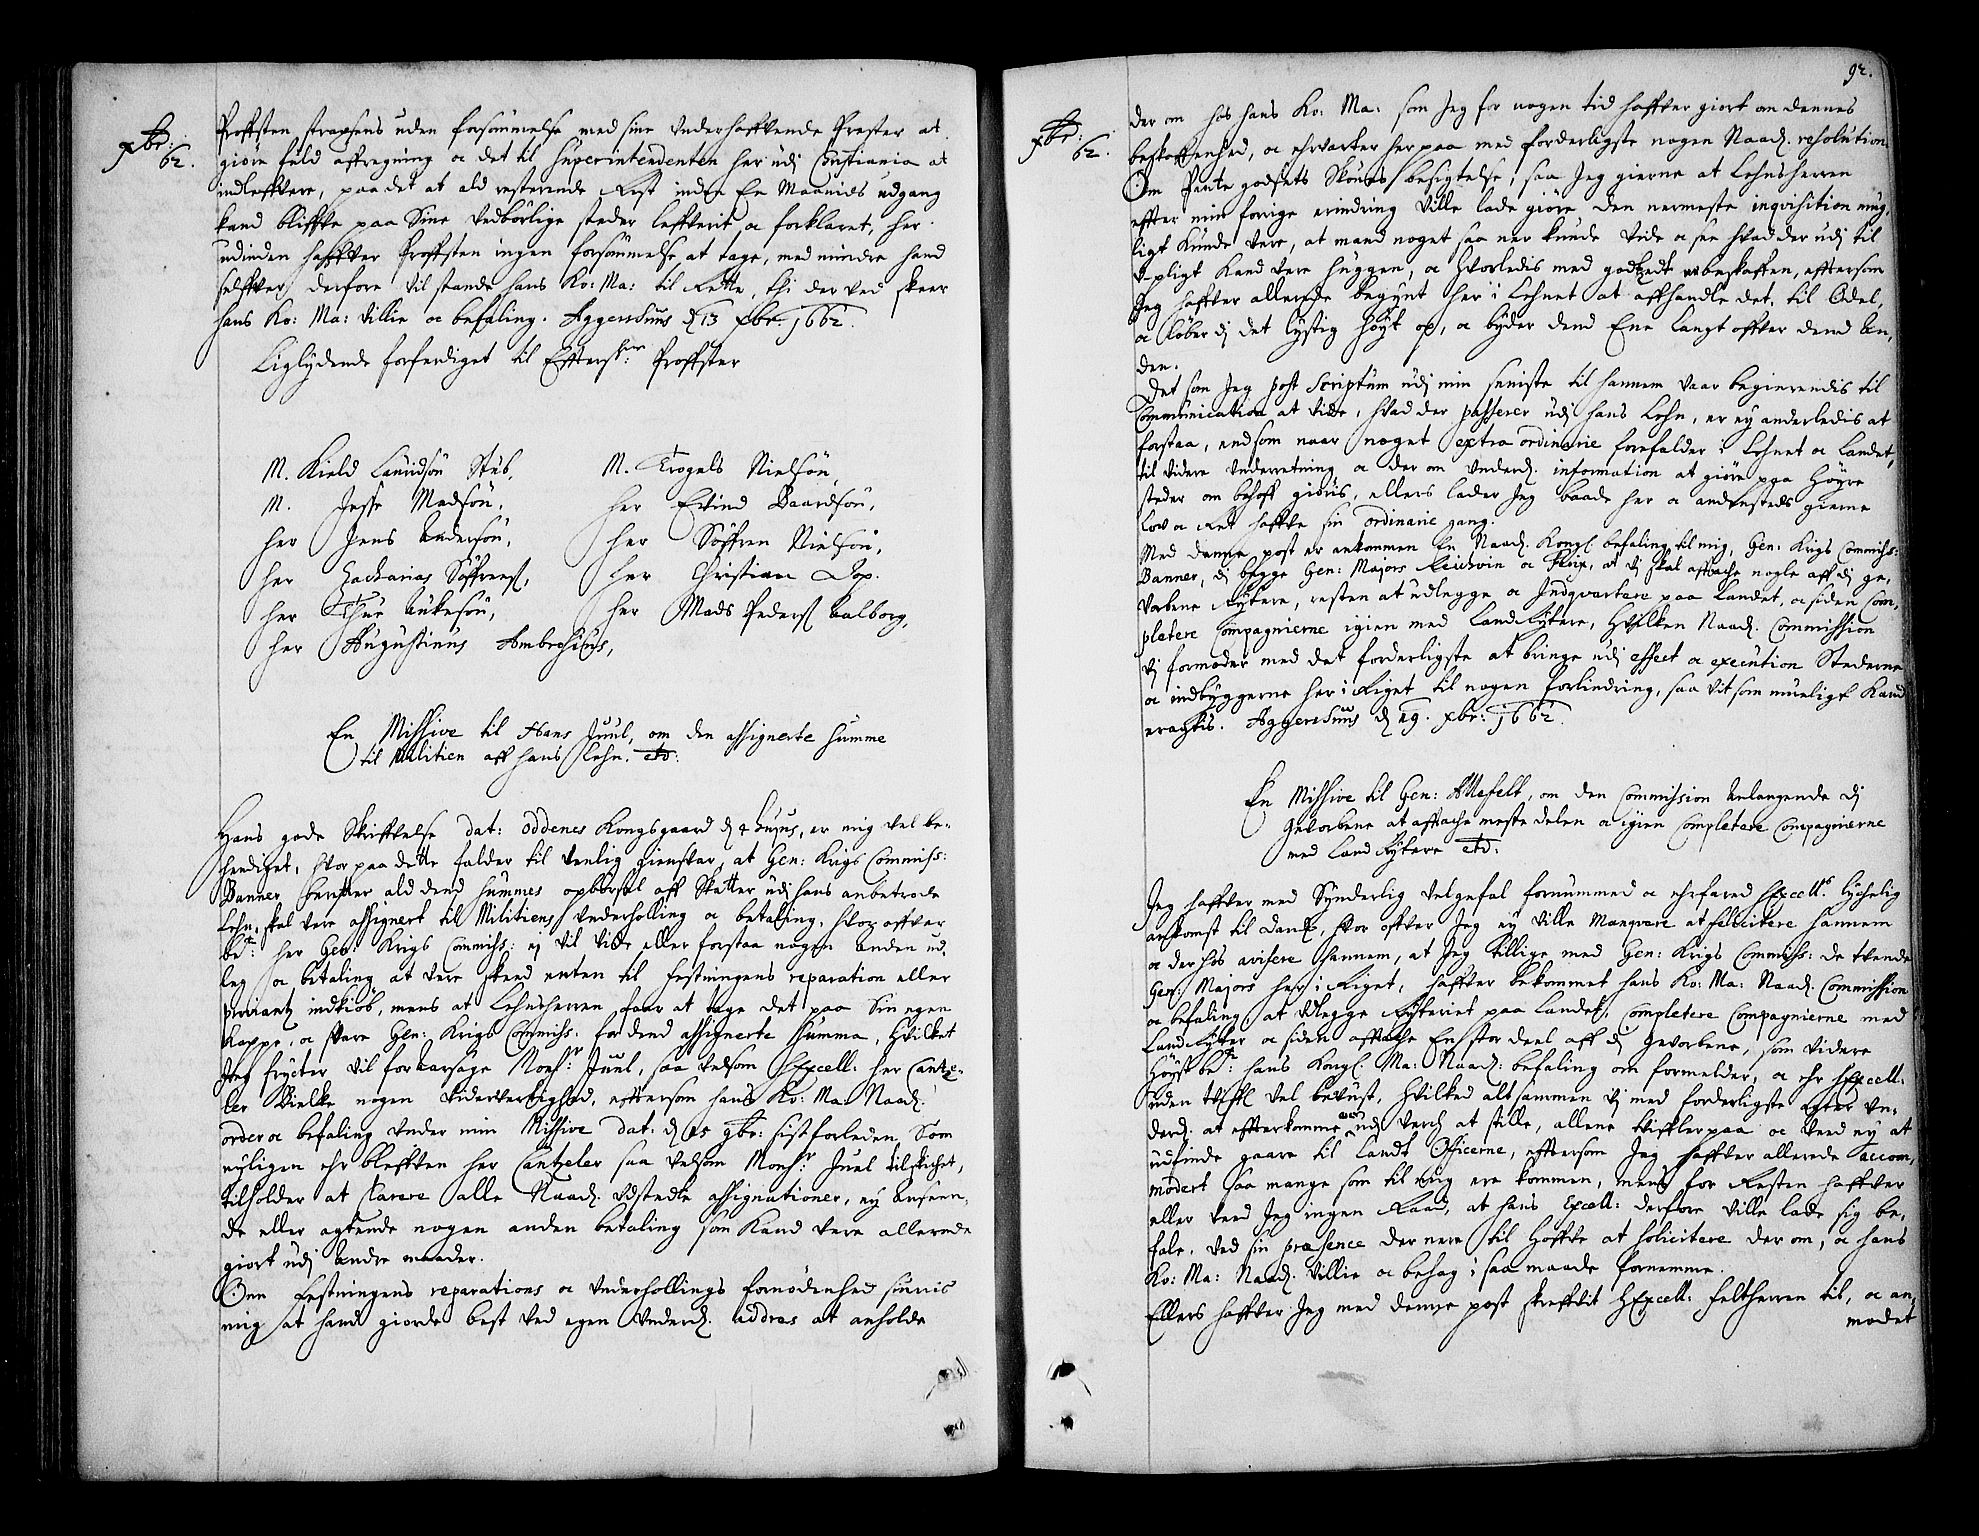 xbr:
62.
Proffsten strapsens uden forsømmelse med sine underhaffvende Prester at
giøre fuld affregning oc det til Superintendenten her udj Christiania at
indleffvere, paa det at ald resterende Rest inden En Maanids udgang
kand bliffve paa sine vedbørlige steder leffverit oc forklaret, her
udinden haffver Proffsten ingen forsømmelse at tage, med mindre hand
selffver derfore vil stande hans Ko: Ma: til Rette, thi der ved skeer
hans Ko: Ma: villie oc befaling. Aggershuus d 13 xbr. 1662.
Liglydende forferdiget til Effterskr: Proffster
M. Kield Lauridsøn Stub, M. Trogels Nielsøn,
M. Jesse Madsøn, her Eivind Baardsøn,
her Jens Andersøn, her Søffren Nielsøn,
her Zacharias Søffrens, her Christian Dop.
her Thue Aukesøn, her Mads Peders Aalborg,
her Augustinus Ambrosius,
En Missive til Hans Juul, om den assignerte summe
til Militien aff hans Lehn. etc:
Hans gode Skriffvelse dat: Oddenes Kongsgaard d 4 hujus, er mig vel be-
hendiget, hvor paa dette falder til venlig giensvar, at Gen: Krigs Commiss:
Banner beretter ald dend summes opbørsel aff Skatter udj hans anbetrode
Lehn, skal vere assignert til Militiens underholling oc betaling, hvor offver
bete: her Gen: Krigs Commiss: ej vil vide eller forstaa nogen anden ud-
leg oc betaling at vere skeed enten til Festningens reparation eller
proviantz indkiøb, mens at Lehnsherren faar at tage det paa sin egen
Kappe, oc svare Gen: Krigs Commiss: for dend assignerte summa, hvilket
Jeg frycter vil foraarsage Monsr: Juul, saa velsom HExcell: her Cantze-
ler Bielke nogen viderverdighed, efftersom hans Ko: Ma: Naad:
order oc befaling under min Missive dat: d 25 9br: sistforleden, som
nyligen ehr bleffven her Cantzeler saa velsom Monsr: Juel tilskichet,
tilholder at clarere alle Naad. udstedte assignationer, ey anseen-
de eller agtende nogen anden betaling som kand vere allerede
giort udj andre maader.
Om Festningens reparations oc underhollings fornødenhed siunis
mig at hand giorde best ved egen underd. addres at anholde
92.
xbr:
62.
der om hos hans Ko: Ma: som Jeg for nogen tid haffver giort om dennes
beskaffenhed, oc ehrvarter her paa med forderligste nogen Naad. resolution.
Om Pantegodsets Skouves besigtelse, saa Jeg gierne at Lehnsherren
effter min forige erindring ville lade giøre den nermeste inqvisition mug-
ligt kunde vere, at mand noget saa ner kunde vide oc see hvad der udj til
upligt kand vere huggen, oc hvorledis med godtzet er beskaffen, efftersom
Jeg haffver allerede begynt her i Lehnet at affhandle det, til Odel,
oc løber dj det lystig høyt op, oc byder dend Ene langt offver dend An-
den.
Det som Jeg post scriptum udj min seniste til hannem vaar begierendis til
Communication at vide, hvad der passerer udj hans Lehn, er ey anderledis at
forstaa, end som naar noget extra ordinarie forefalder i Lehnet oc Landet,
til videre underretning oc der om underd. information at giøre paa høyre
steder om behoff giøris, ellers lader Jeg baade her oc andenstedts gierne
lov oc Ret haffve sin ordinarie gang.
Med denne post er ankommen En Naad. Kongl befaling til mig, Gen: Krigs Commiss:
Banner, dj begge Gen: Majors Reichvin oc Brix, at vj skal afftache nogle aff dj ge-
vorbene Rytere, resten at udlegge oc Indqvartere paa Landet, oc siden com-
pletere Compagnierne igien med Land Rytere, hvilken Naad. Commission
vj formoder med det forderligste at bringe udj effect oc execution Stederne
oc indbyggerne her i Riget til nogen forlindring, saa vit som mueligt kand
eragtis. Aggershuus d 29. xbr: 1662.
En Missive til Gen: Allefelt, om den Commission anlangende dj
Gevorbene at afftache meste delen oc igien completere Compagnierne
med Land Rytere etc:
Jeg haffver med synderlig velgefal fornummed oc ehrfared HExcells lychelig
ankomst til Danmk, hvor offver Jeg ey ville manqvere at felicitere hannem
oc der hos avisere hannem, at Jeg tillige med Gen: Krigs Commiss: de tvende
Gen: Majors her i Riget, haffver bekommet hans Ko: Ma: Naad. Commission
oc befaling at udlegge Ryteriet paa Landet, completere Compagnierne med
Land Ryter oc siden afftache En stor deel aff dj Gevorbene, som videre
høystbete: hans Kongl. Ma: Naad: befaling om formelder, oc ehr HExcell:
uden tviffl vel bevust, hvilked altsammen vj med forderligste agter un-
derd. at effterkomme oc udj verch at stille, allene tviffler paa oc veed ey at
udfinde gaare til Landt Officerne, efftersom Jeg haffver allerede accom-
modert saa mange som til mig ere kommen, mens for Resten haffver
eller veed Jeg ingen Raad, at hans Excell: derfore ville lade sig be-
fale, ved sin præsence der nere til Hoffve at solicitere der om, oc hans
Ko: Ma: Naad. villie oc behag i saa maade fornemme.
Ellers haffver Jeg med denne post skreffvit HExcell: Feltherren til, oc an-
modet